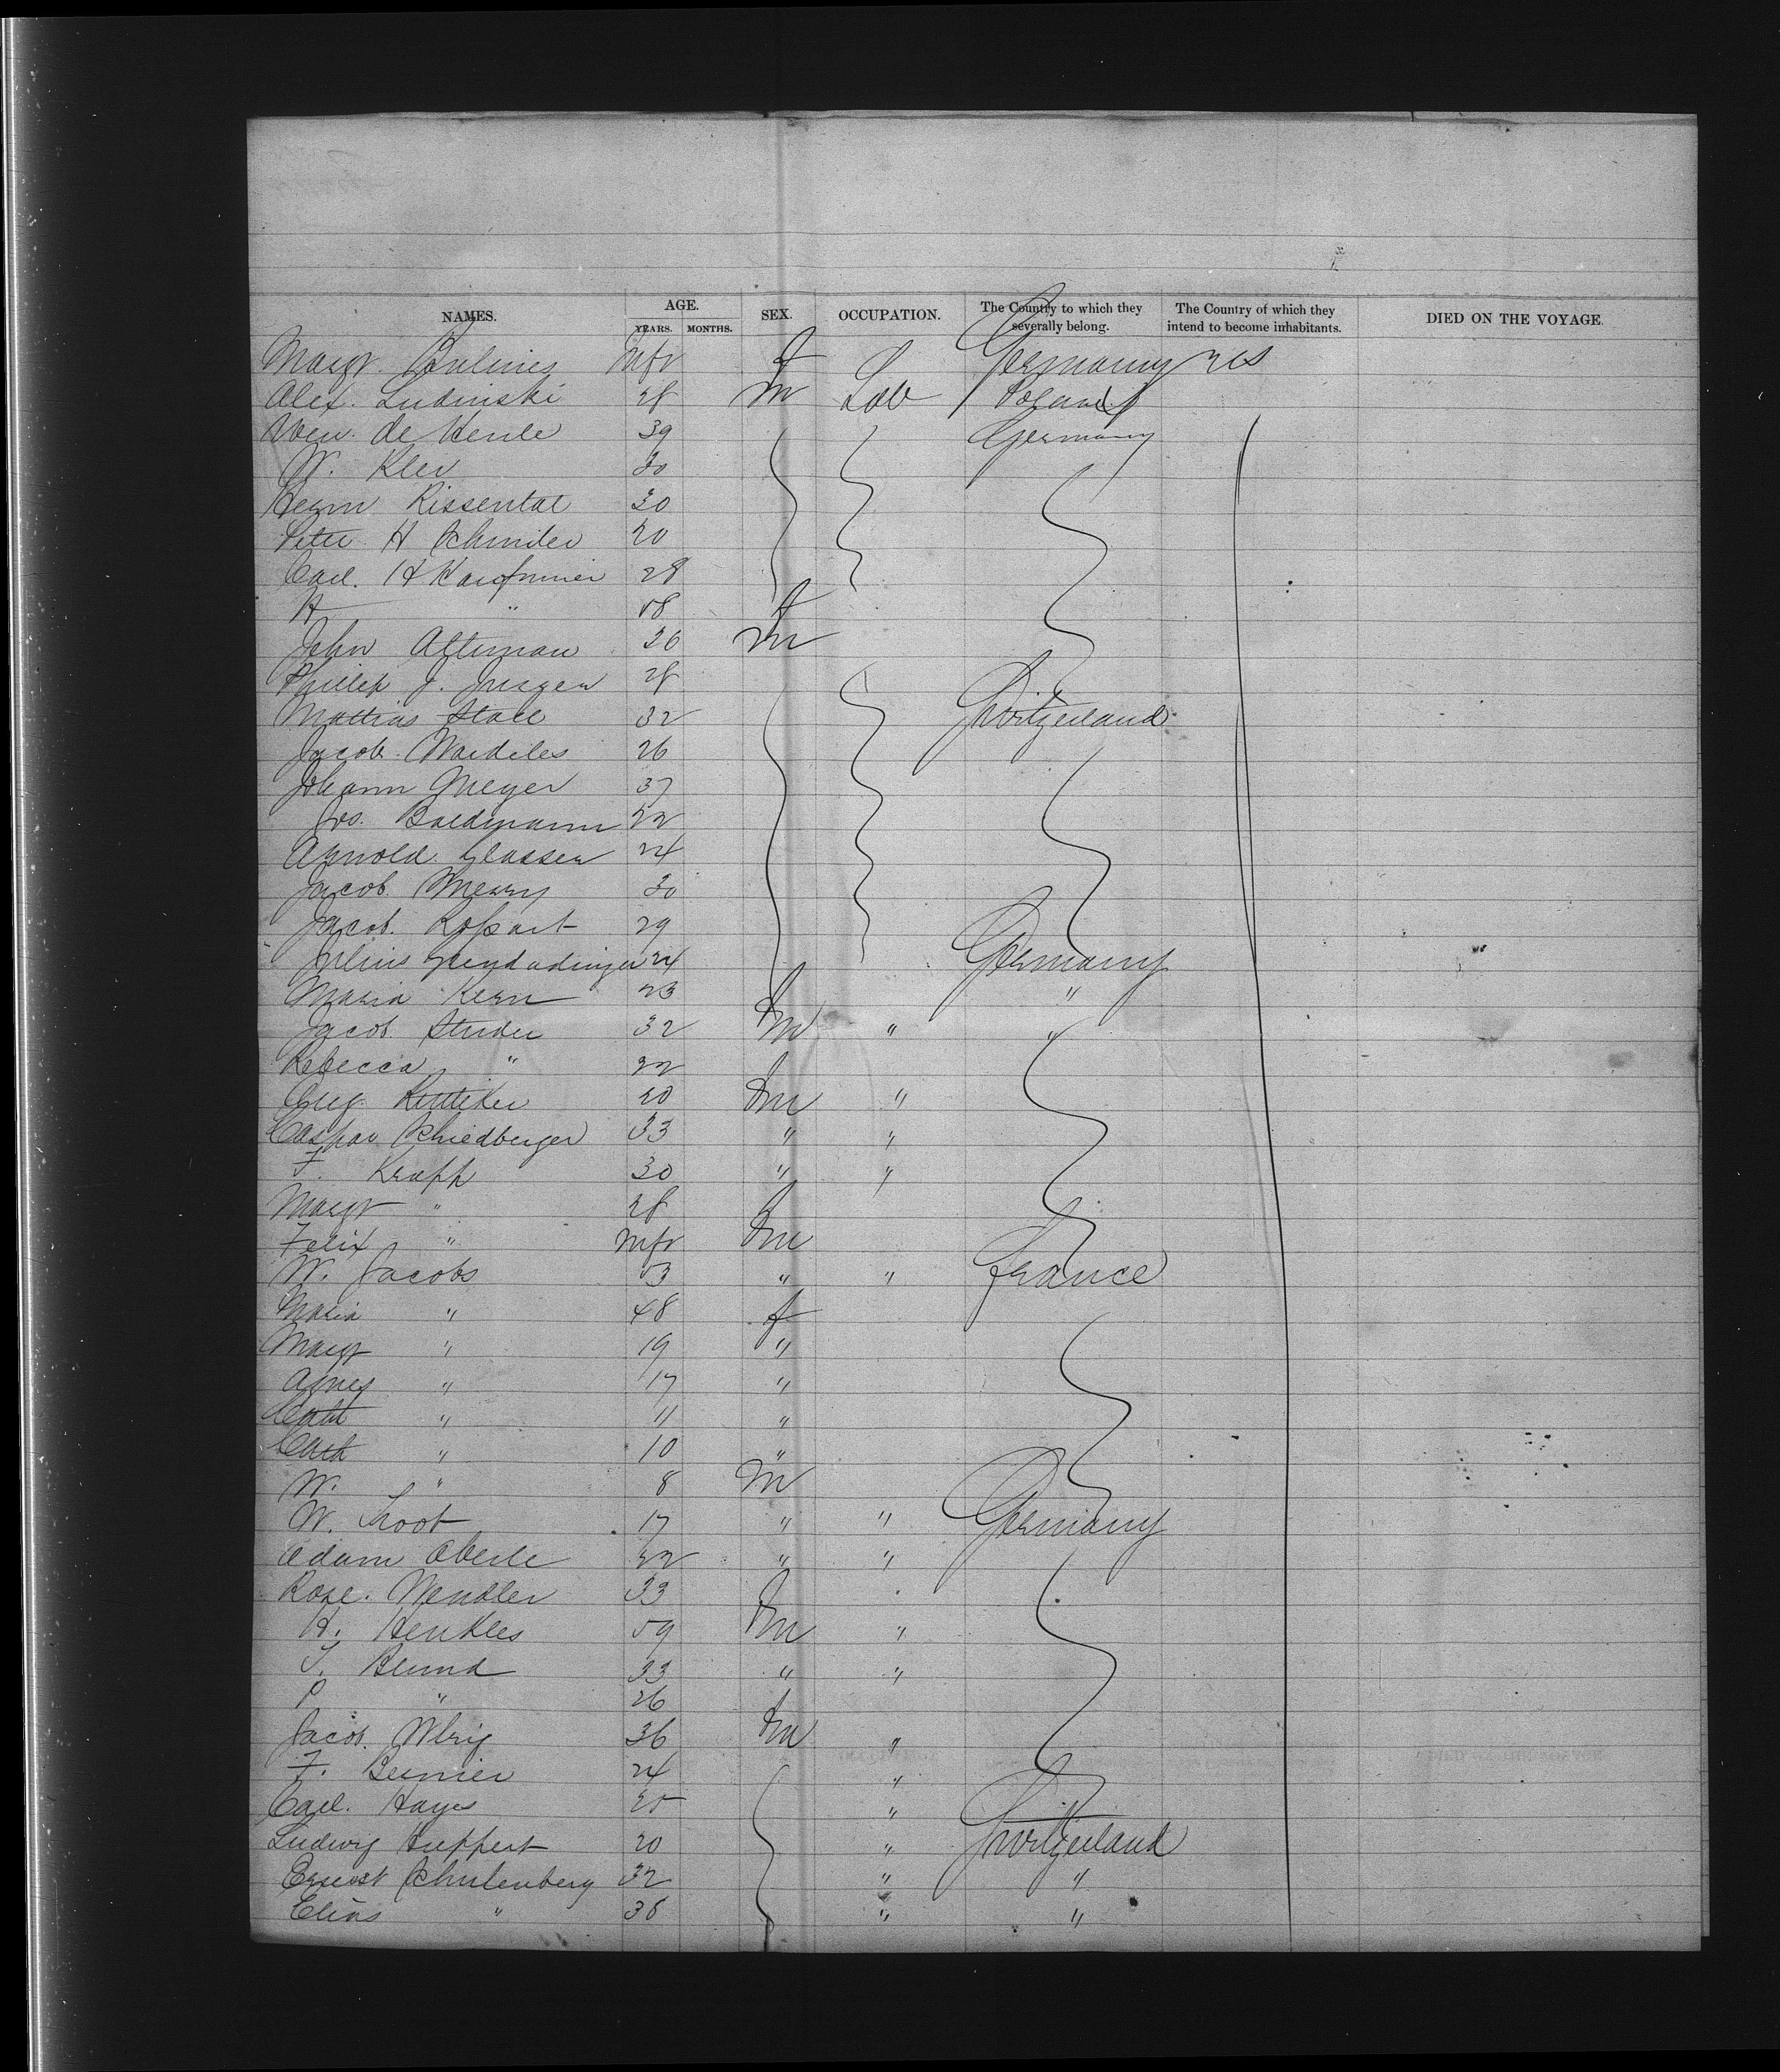 NAMES. AGE. YEARS. MONTHS. SEX. OCCUPATION. The Country to which they severally belong. The Country of which they intend to become inhabitants. DIED ON THE VOYAGE.
Margt. Infr f Germany US
Alex. Ludinski 28 m Lab Poland
de Henle 39 Germany
W. Kler 30
Herm Rissental 30
Peter H Schmiler 20
Carl. H 28
H " 58 f
John Altiman 26 m
Phillip J. Jnsgen 28
Mattias Stall 32 Switzerland
Jacob. Wardeles 26
Johann Meyer 37
Jos. Baldmann 22
Arnold. Classen 24
Jacob. 30
Jacob. 29
Julius 24 Germany
Maria Kern 23 f "
Jacob. Studer 32 m " "
Rebecca " 22 f
Aug. Ruttiker 20 m "
Caspar Schiedberger 33 " "
F. Krapp 30 " "
Margt " 28 f
Felix " Infr m
W. Jacobs 53 " " France
Maria " 48 f
Margt " 19 "
Agnes " 17 "
" 11 "
Cath " 10 "
W. " 8 m
W. Troot 17 " " Germany
Adam Oberle 22 " "
Rose. Wendler 33 f
H. Henkles 59 m "
Blund 33 " "
P " 26 f
Jacob. 36 m "
F. 24 "
Carl. Hayes 25 "
Ludwig Huppert 20 " Switzerland
Ernest Schulenberg 32 " "
Elias " 36 " "